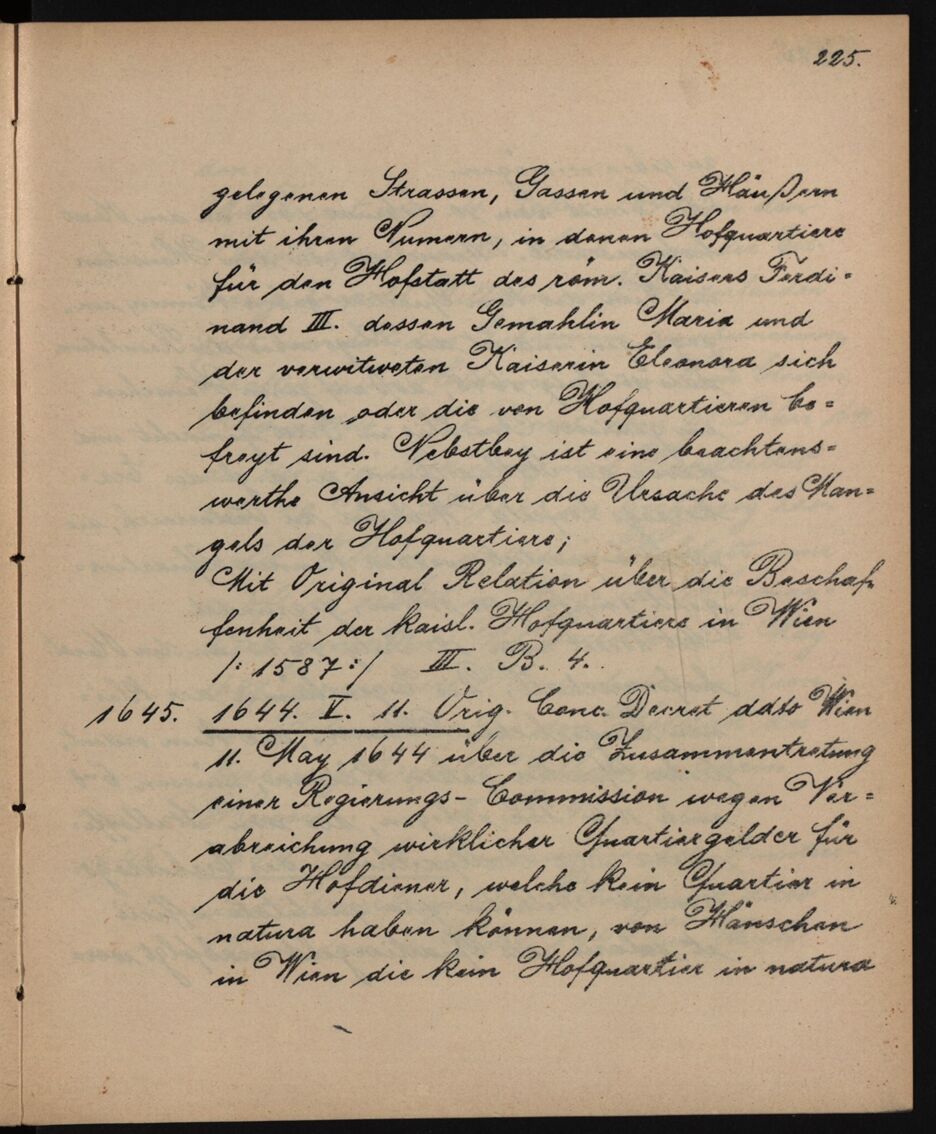 225.
gelegenen Strassen, Gassen und Häußern
mit ihren Numern, in denen Hofquartiere
für den Hofstatt des röm. Kaisers Ferdi=
nand III. dessen Gemahlin Maria und
der verwitweten Kaiserin Eleonora sich
befinden oder die von Hofquartieren be=
freyt sind. Nebstbey ist eine beachtens=
werthe Ansicht über die Ursache des Man=
gels der Hofquartiere;
Mit Original Relation über die Beschaf=
fenheit der kaisl. Hofquartiere in Wien
/: 1587 :/ III. B. 4.
1645. 1644. V. 11. Orig. Conc. Decret ddto Wien
11. May 1644 über die Zusammentretung
einer Regierungs-Commission wegen Ver=
abreichung wirklicher Quartiergelder für
die Hofdiener, welche kein Quartier in
natura haben können, von Häuschen
in Wien die kein Hofquartier in natura